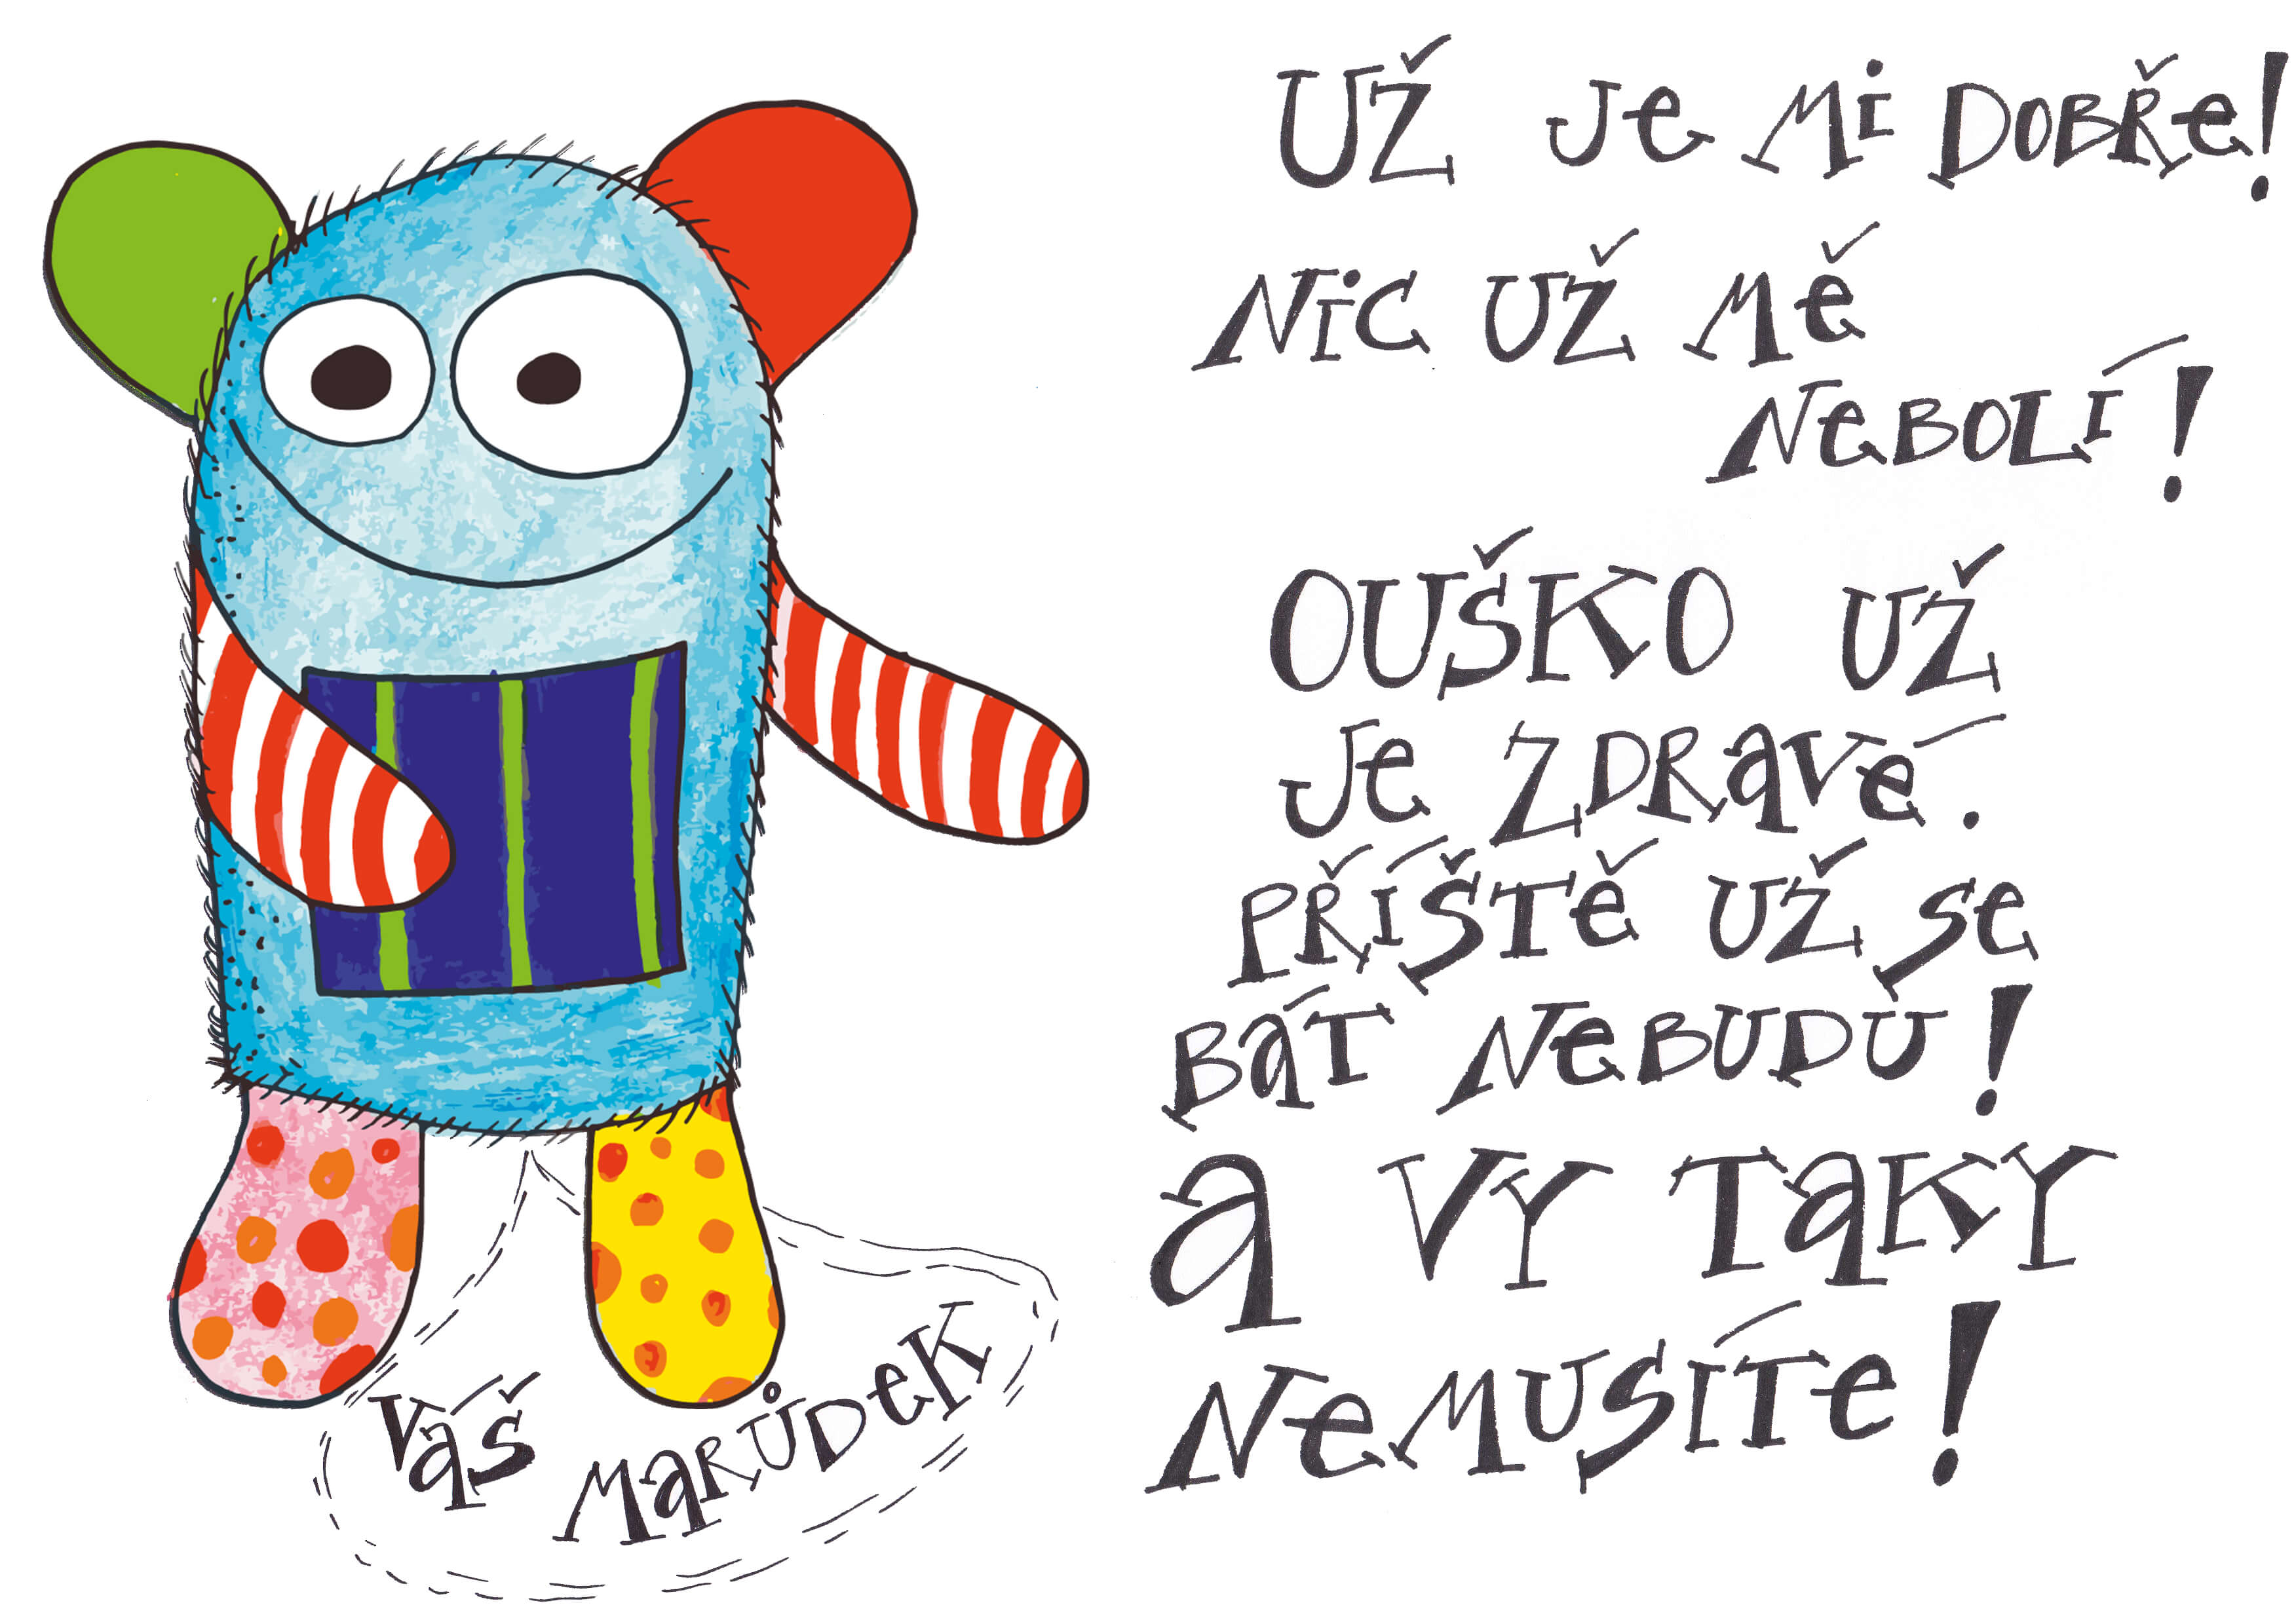 UŽ Je Mi DOBŘe!
NiC UŽ Mě
NeBOLÍ!
OUŠKO UŽ
Je ZDRaVé.
PŘÍŠTě UŽ Se
BáT NeBUDU!
a VY TaKY
NeMUSÍTe!
VáŠ MaRŮDeK